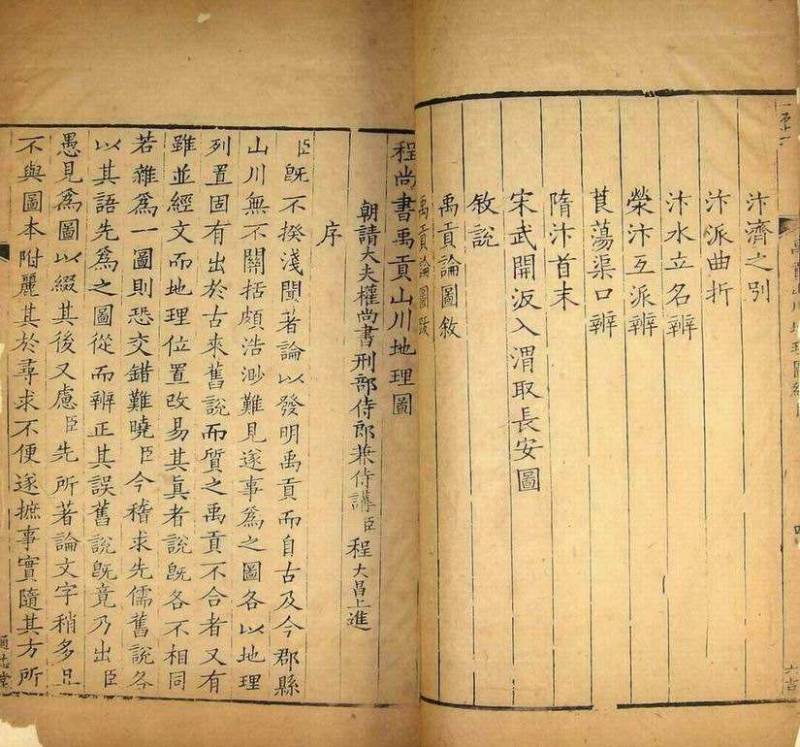 汴濟之別
汴派曲折
汴水立名辨
滎汴互派辨
莨蕩渠口辨
隋汴首末
宋武開汳入渭取長安圖
敘説
禹貢論圖敘
禹貢論圖跋
程尚書禹貢山川地理圖
朝請大夫權尚書刑部侍郎兼侍講臣程大昌上進
序
臣旣不揆淺聞著論以發明禹貢而自古及今郡縣
山川無不關括頗浩渺難見遂事爲之圖各以地理
列置固有出於古來舊說而質之禹貢不合者又有
雖並經文而地理位置改易其真者說旣各不相同
若雜爲一圖則恐交錯難曉臣今稽求先儒舊說各
以其語先爲之圖從而辨正其誤舊說旣竟乃出臣
愚見爲圖以綴其後又慮臣先所著論文字稍多且
不與圖本附麗其於尋求不便遂摭事實隨其方所
通志堂